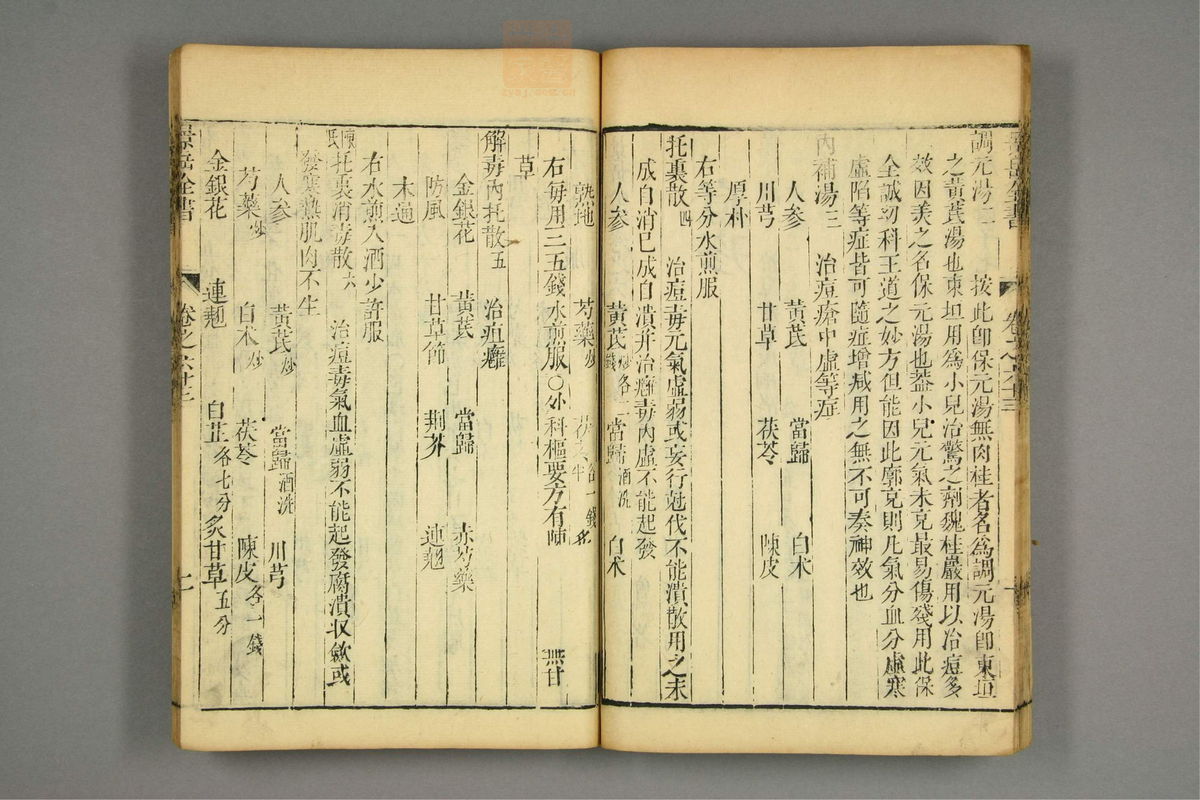 調元湯二 按此即保元湯無肉桂者名爲調元湯即東垣
之黃芪湯也東垣用爲小兒治驚之劑魏桂巖用以治痘多
效因美之名保元湯也葢小兒元氣未充最易傷殘用此保
全誠幼科王道之妙方但能因此廓充則凡氣分血分虛寒
虛陷等症皆可隨症增减用之無不可奏神效也
內補湯三 治痘瘡中虛等症
人參 黃芪 當歸 白朮
川芎 甘草 茯苓 陳皮
厚朴
右等分水煎服
托裏散四 治痘毒元氣虛弱或妄行尅伐不能潰散用之未
成自消已成自潰并治癰毒內虛不能起發
人參 黃芪炒各二錢 當歸酒洗 白朮
熟地 芍藥炒 茯苓各一錢半
右每用三五錢水煎服○外科樞要方有陳皮無甘
草
解毒內托散五 治疽癰
金銀花 黃芪 當歸 赤芍藥
防風 甘草節 荆芥 連翹
木通
右水煎入酒少許服
陳氏托裏消毒散六 治痘毒氣血虛弱不能起發腐潰収斂或
發寒熱肌肉不生
人參 黃芪炒 當歸酒洗 川芎
芍藥炒 白朮炒 茯苓 陳皮各一錢
金銀花 連翹 白芷各七分 炙甘草五分
景岳全書 卷之六十三 二